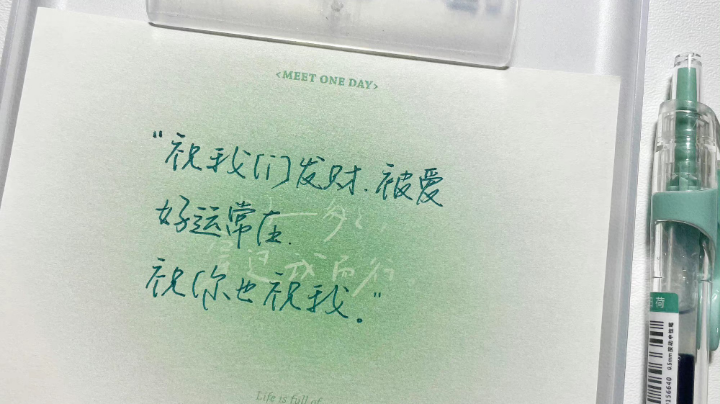 <MEET ONE DAY>
“祝我们发财、被爱
好运常在.
祝你也祝我。”
Life is full of
荷
0.5mm
156640